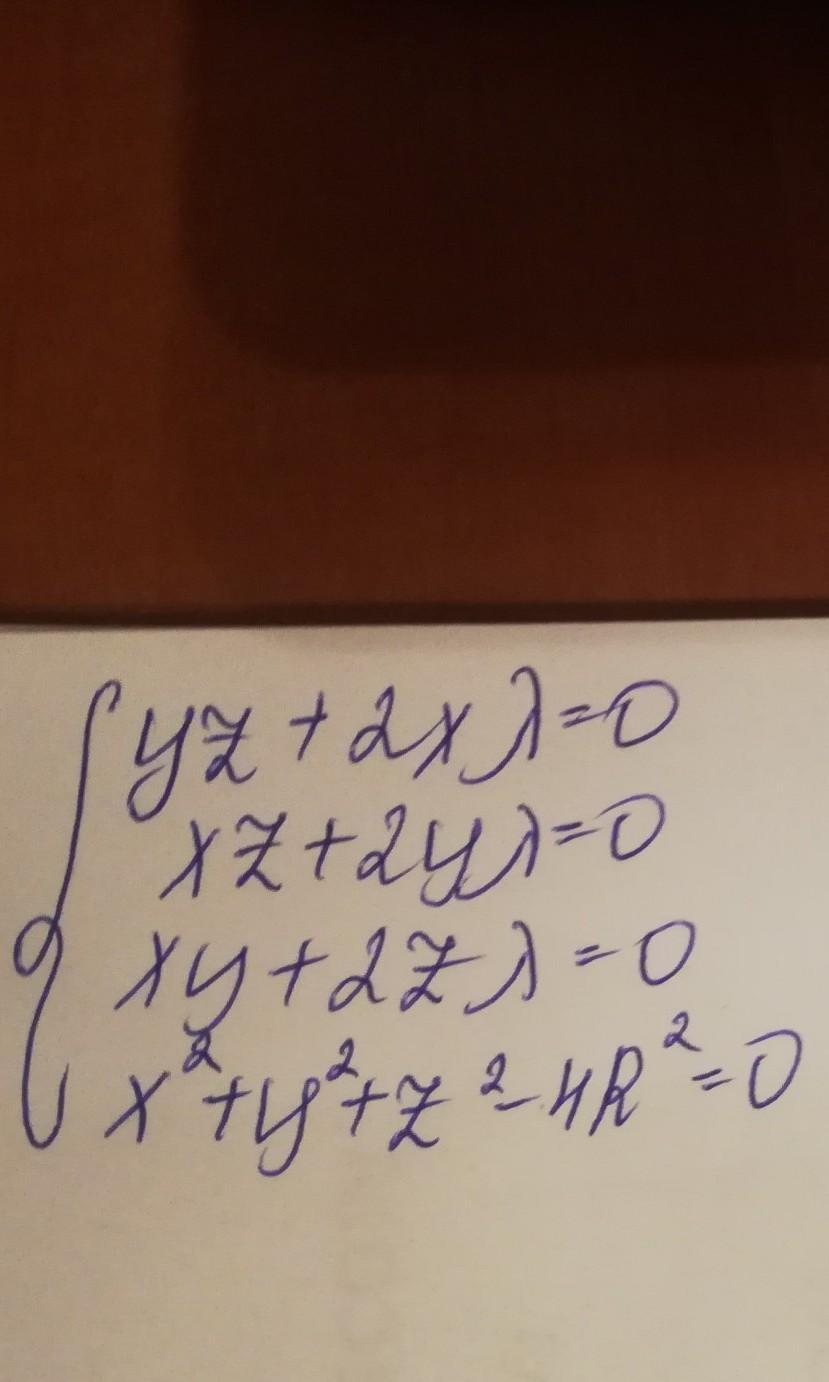 yz + 2xλ = 0
xz + 2yλ = 0
xy + 2zλ = 0
x² + y² + z² - 4R² = 0